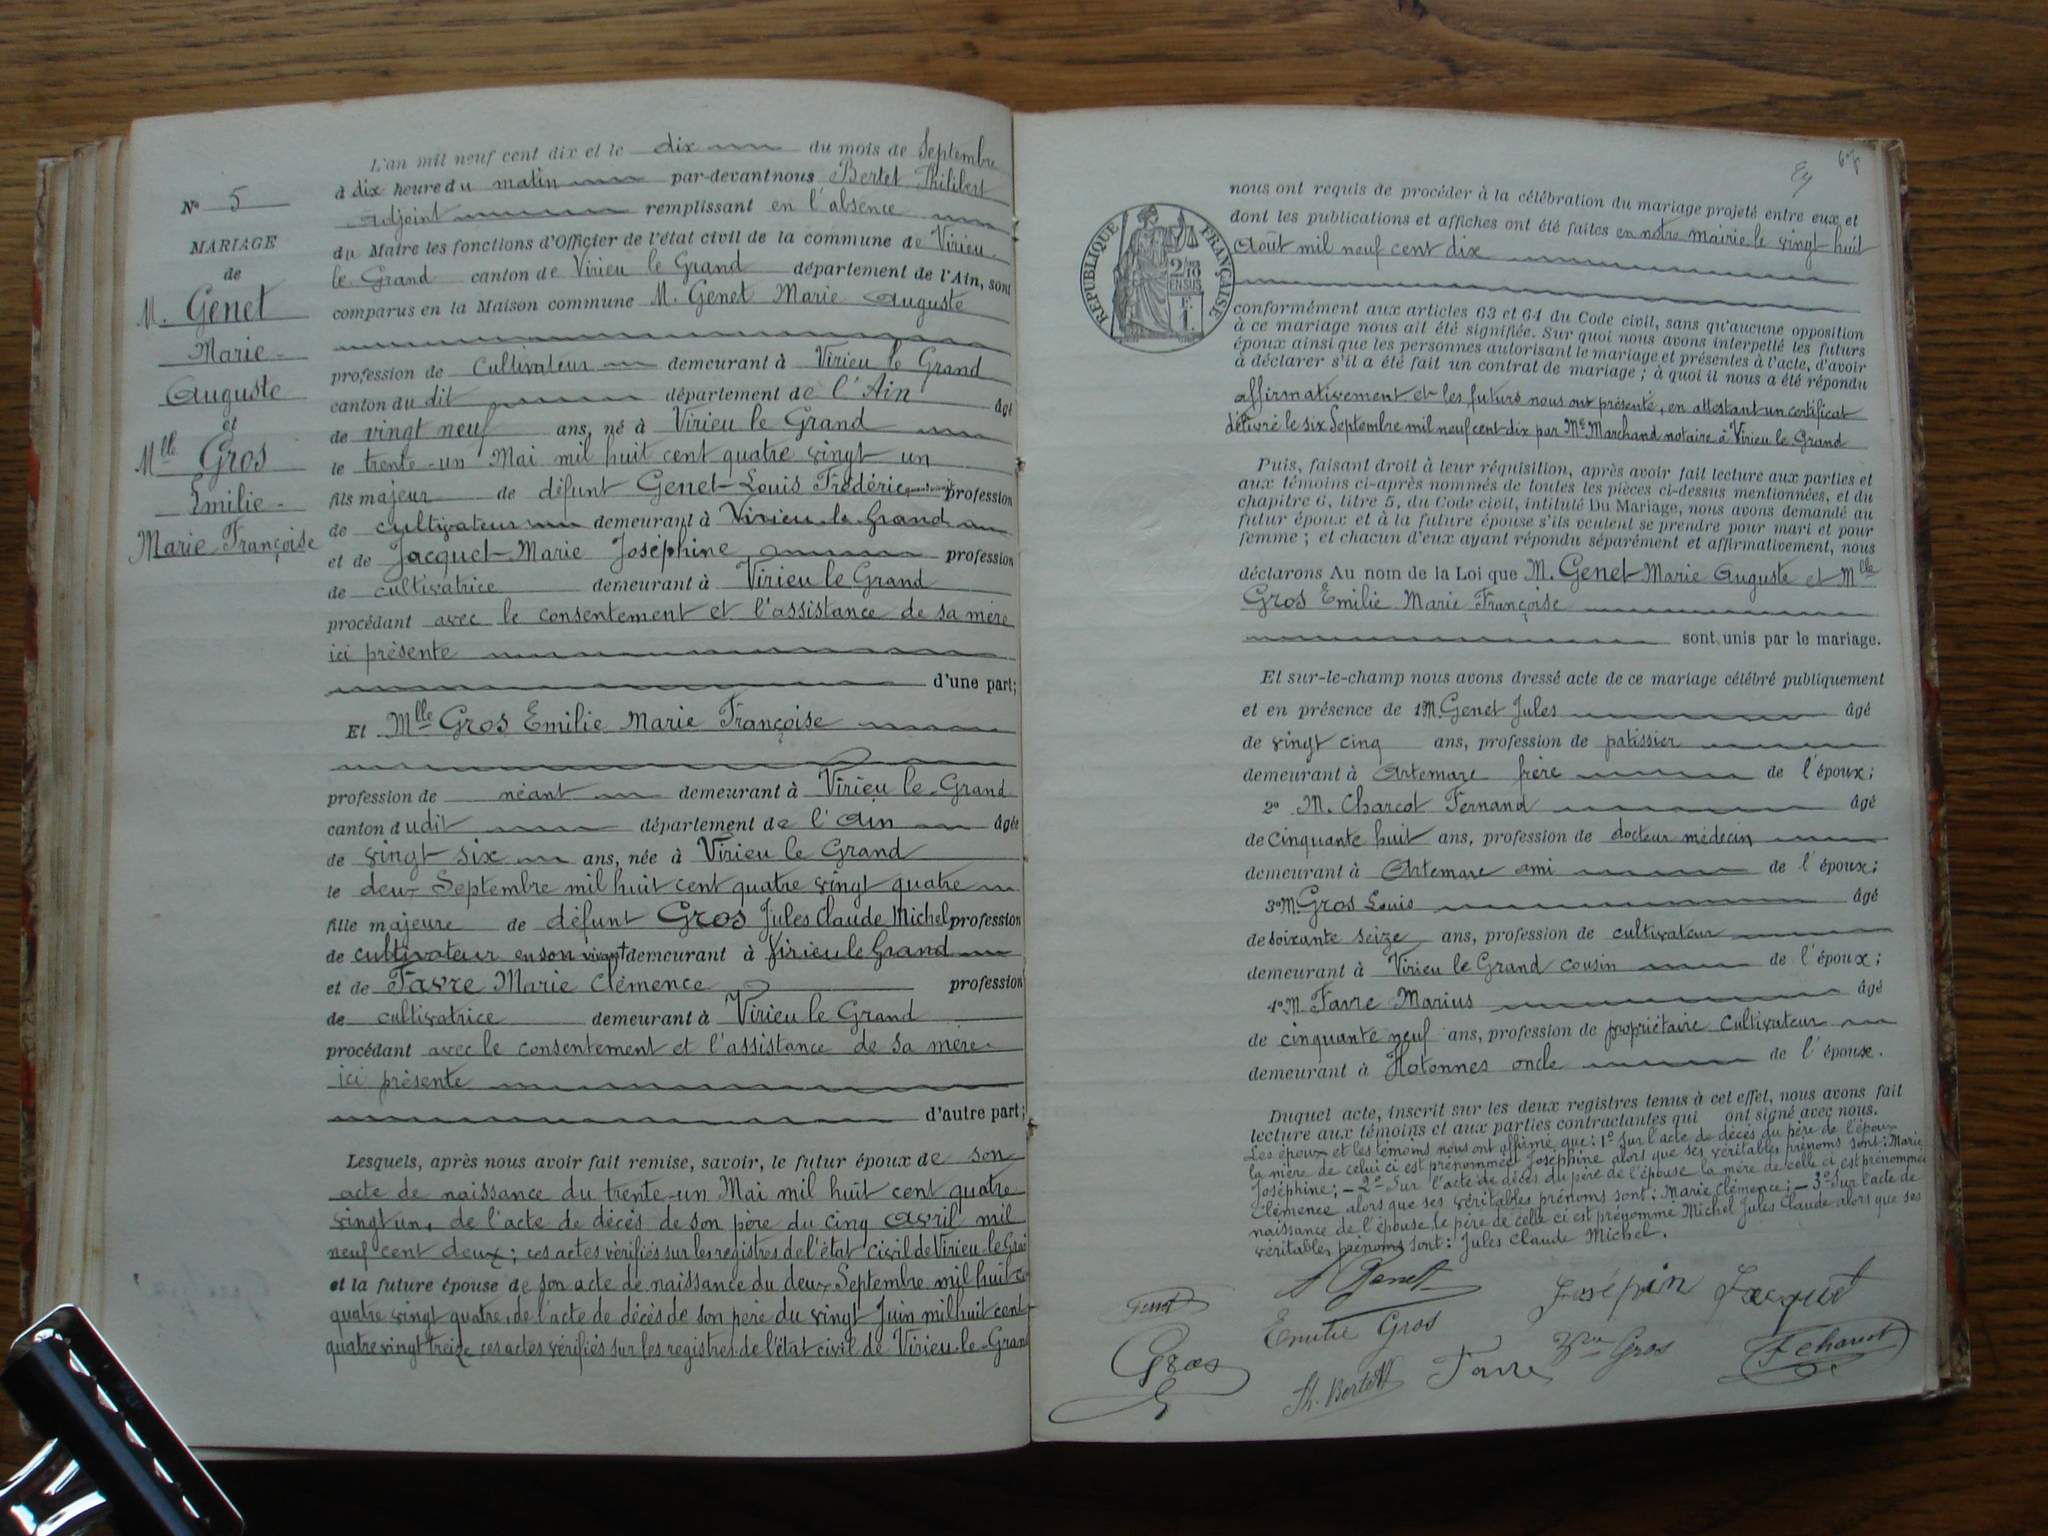 N° 5
MARIAGE
de
M. Genet
Marie
Auguste
et
Mlle Gros
Emilie
Marie Françoise
L'an mil neuf cent dix et le dix du mois de Septembre
à dix heure du matin par-devant nous Bertet Philibert
adjoint remplissant en l'absence
du Maire les fonctions d'Officier de l'état civil de la commune de Virieu
le Grand canton de Virieu le Grand département de l'Ain, sont
comparus en la Maison commune M. Genet Marie Auguste
profession de Cultivateur demeurant à Virieu le Grand
canton du dit département de l'Ain âgé
de vingt neuf ans, né à Virieu le Grand
le trente-un Mai mil huit cent quatre vingt un
fils majeur de défunt Genet Louis Frédéric profession
de cultivateur demeurant à Virieu le Grand
et de Jacquet Marie Joséphine profession
de cultivatrice demeurant à Virieu le Grand
procédant avec le consentement et l'assistance de sa mère
ici présente
d'une part;
Et Mlle Gros Emilie Marie Françoise
profession de néant demeurant à Virieu le Grand
canton dudit département de l'Ain âgée
de vingt six ans, née à Virieu le Grand
le deux Septembre mil huit cent quatre vingt quatre
fille majeure de défunt Gros Jules Claude Michel profession
de cultivateur en son vivant demeurant à Virieu le Grand
et de Favre Marie Clémence profession
de cultivatrice demeurant à Virieu le Grand
procédant avec le consentement et l'assistance de sa mère
ici présente
d'autre part;
Lesquels, après nous avoir fait remise, savoir, le futur époux de son
acte de naissance du trente-un Mai mil huit cent quatre
vingt un, de l'acte de décès de son père du cinq Avril mil
neuf cent deux; ces actes vérifiés sur les registres de l'état civil de Virieu-le-Grand
et la future épouse de son acte de naissance du deux Septembre mil huit cent
quatre vingt quatre, de l'acte de décès de son père du vingt Juin mil huit cent
quatre vingt treize ces actes vérifiés sur les registres de l'état civil de Virieu-le-Grand
RÉPUBLIQUE FRANÇAISE
2/10 EN SUS
1 F.
nous ont requis de procéder à la célébration du mariage projeté entre eux et
dont les publications et affiches ont été faites en notre mairie le vingt huit
Août mil neuf cent dix
conformément aux articles 63 et 64 du Code civil, sans qu'aucune opposition
à ce mariage nous ait été signifiée. Sur quoi nous avons interpellé les futurs
époux ainsi que les personnes autorisant le mariage et présentes à l'acte, d'avoir
à déclarer s'il a été fait un contrat de mariage; à quoi il nous a été répondu
affirmativement et les futurs nous ont présenté, en attestant un certificat
délivré le six Septembre mil neuf cent dix par Me Marchand notaire à Virieu le Grand
Puis, faisant droit à leur réquisition, après avoir fait lecture aux parties et
aux témoins ci-après nommés de toutes les pièces ci-dessus mentionnées, et du
chapitre 6, titre 5, du Code civil, intitulé Du Mariage, nous avons demandé au
futur époux et à la future épouse s'ils veulent se prendre pour mari et pour
femme; et chacun d'eux ayant répondu séparément et affirmativement, nous
déclarons Au nom de la Loi que M. Genet Marie Auguste et Mlle
Gros Emilie Marie Françoise
sont unis par le mariage.
Et sur-le-champ nous avons dressé acte de ce mariage célébré publiquement
et en présence de 1° M. Genet Jules âgé
de vingt cinq ans, profession de patissier
demeurant à Artemare frère de l'époux;
2° M. Charcot Fernand âgé
de cinquante huit ans, profession de docteur médecin
demeurant à Artemare ami de l'époux;
3° M. Gros Louis âgé
de soixante seize ans, profession de cultivateur
demeurant à Virieu le Grand cousin de l'époux;
4° M. Favre Marius âgé
de cinquante neuf ans, profession de propriétaire cultivateur
demeurant à Hotonnes oncle de l'épouse.
Duquel acte, inscrit sur les deux registres tenus à cet effet, nous avons fait
lecture aux témoins et aux parties contractantes qui ont signé avec nous.
Les époux et les témoins nous ont affirmé que: 1° Sur l'acte de décès du père de l'époux
la mère de celui ci est prénommée Joséphine alors que ses véritables prénoms sont: Marie
Joséphine; - 2° Sur l'acte de décès du père de l'épouse la mère de celle ci est prénommée
Clémence alors que ses véritables prénoms sont: Marie Clémence; - 3° Sur l'acte de
naissance de l'épouse le père de celle ci est prénommé Michel Jules Claude alors que ses
véritables prénoms sont: Jules Claude Michel.
Genet Genet Josépin Jacquet
Emilie Gros
Gros Th. Bertet Favre Vve Gros